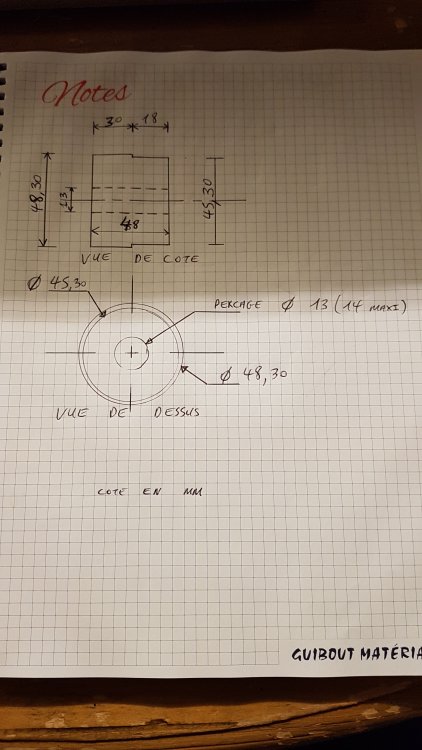 Notes
30 18
48,30
13
45,30
48
VUE DE COTE
Ø 45,30
PERCAGE Ø 13 (14 MAXI)
Ø 48,30
VUE DE DESSUS
COTE EN MM
GUIBOUT MATÉRIA